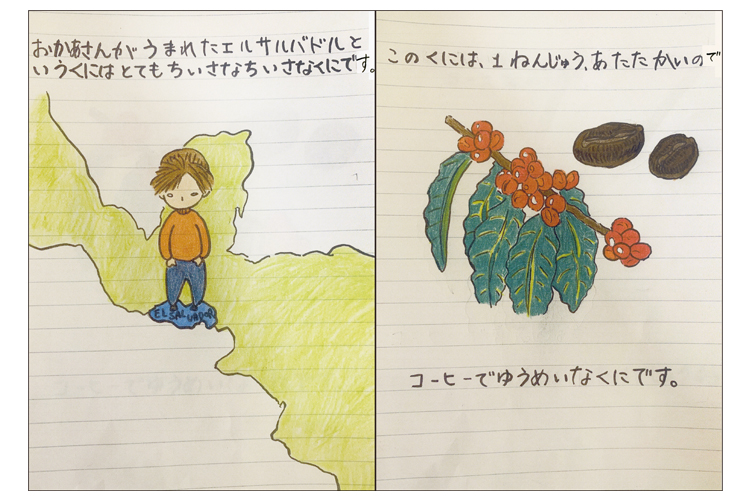 おかあさんがうまれたエルサルバドルと
いうくにはとてもちいさなちいさなくにです。
EL SALVADOR
このくには、1ねんじゅう、あたたかいので
コーヒーでゆうめいなくにです。